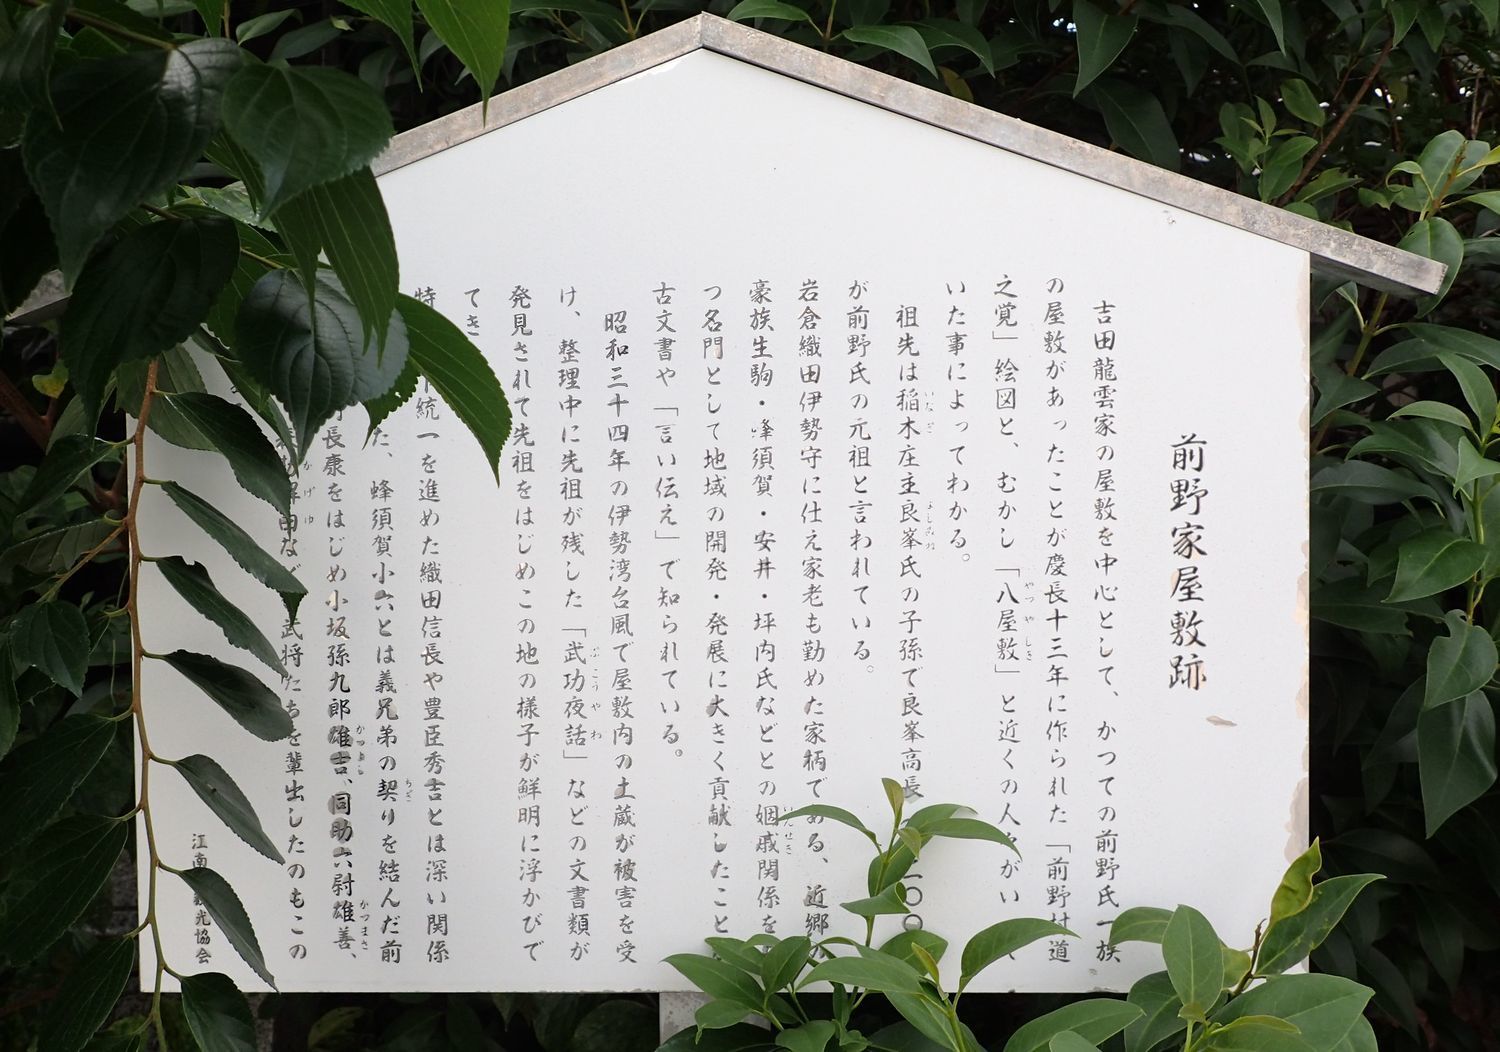 前野家屋敷跡
吉田龍雲家の屋敷を中心として、かつての前野氏一族
の屋敷があったことが慶長十三年に作られた「前野村道
之覚」絵図と、むかし「八屋敷」と近くの人々がいて
やつやしき
いた事によってわかる。
祖先は稲木庄主良峯氏の子孫で良峯高長 二〇〇
いなぎ
よしみね
が前野氏の元祖と言われている。
岩倉織田伊勢守に仕え家老も勤めた家柄である、近郷の
豪族生駒・蜂須賀・安井・坪内氏などとの姻戚関係を
いんせき
つ名門として地域の開発・発展に大きく貢献したこと
古文書や「言い伝え」で知られている。
昭和三十四年の伊勢湾台風で屋敷内の土蔵が被害を受
け、整理中に先祖が残した「武功夜話」などの文書類が
ぶこうやわ
発見されて先祖をはじめこの地の様子が鮮明に浮かびで
てき
特 統一を進めた織田信長や豊臣秀吉とは深い関係
た、蜂須賀小六とは義兄弟の契りを結んだ前
ちぎ
長康をはじめ小坂孫九郎雄吉、同助六尉雄善、
かつよし
かつまさ
解由など 武将たちを輩出したのもこの
かげゆ
江南 観光協会